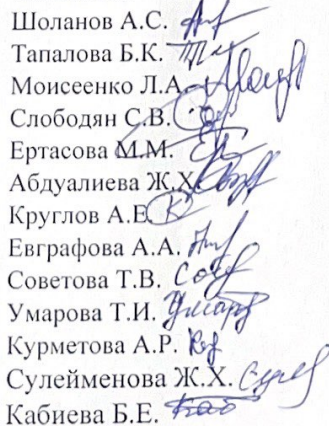 Шоланов А.С.
Тапалова Б.К.
Моисеенко Л.А.
Слободян С.В.
Ертасова М.М.
Абдуалиева Ж.Х.
Круглов А.Е.
Евграфова А.А.
Советова Т.В.
Умарова Т.И.
Курметова А.Р.
Сулейменова Ж.Х.
Кабиева Б.Е.